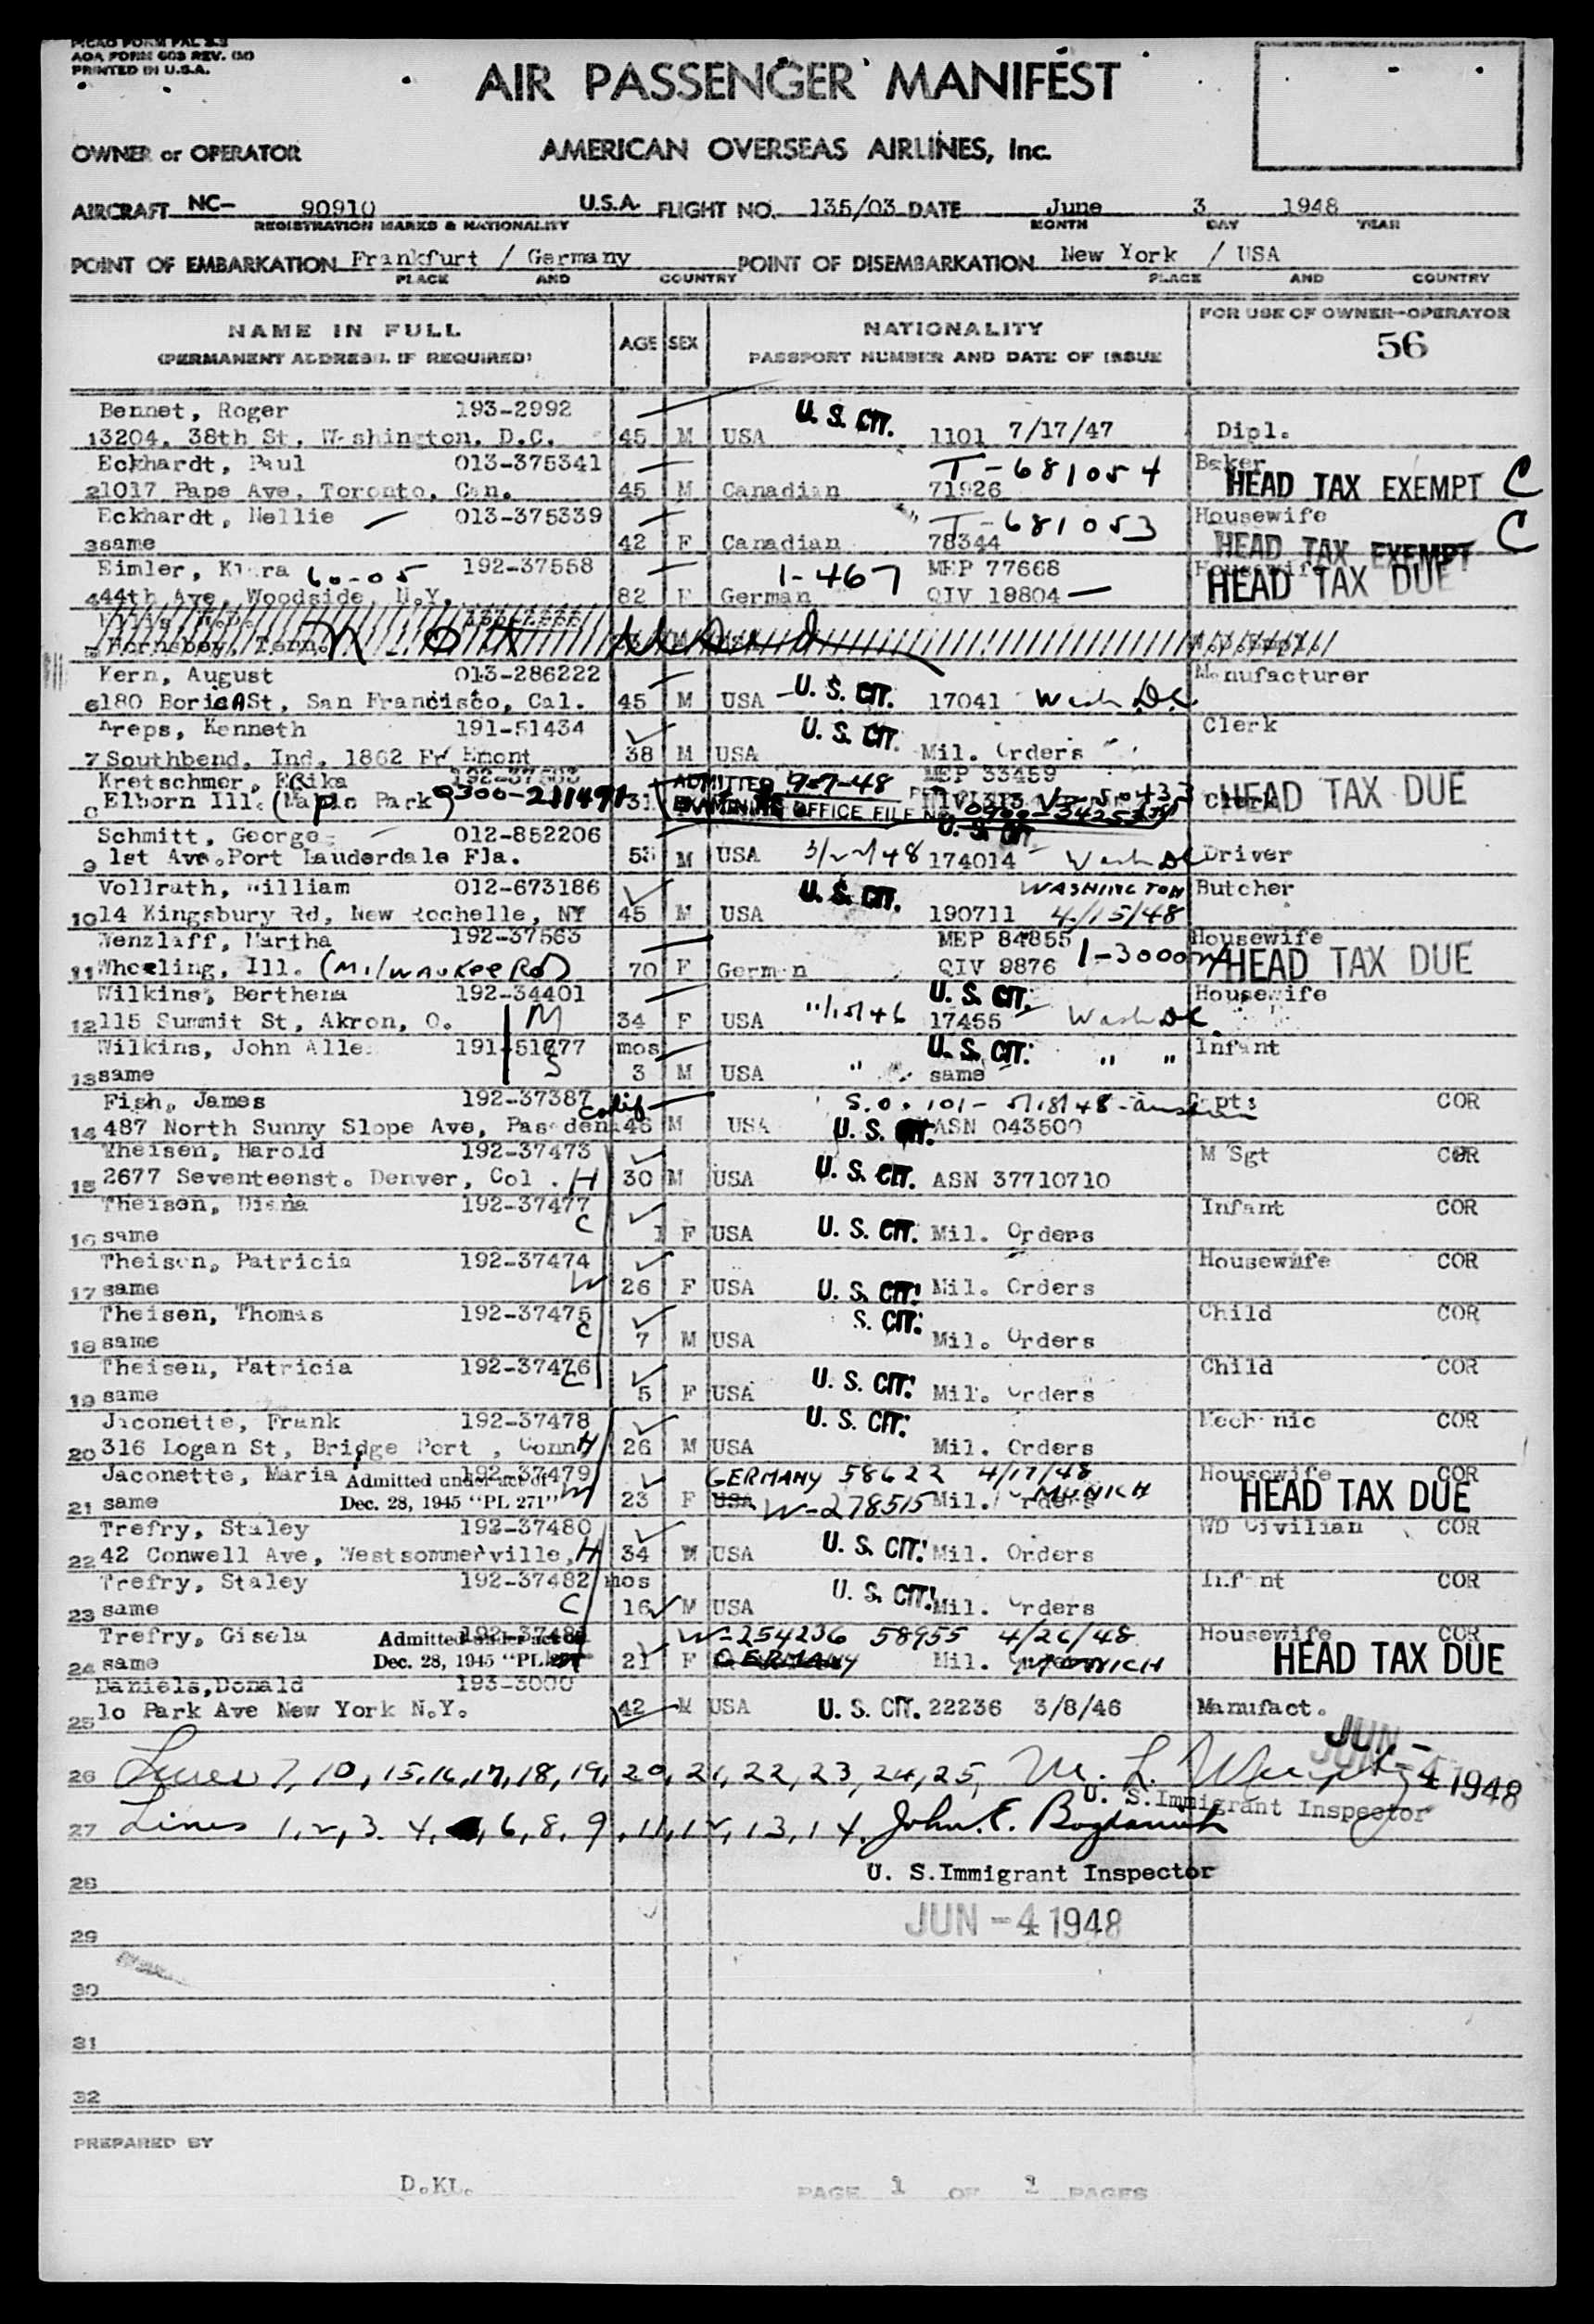 AOA FORM 603 REV.
PRINTED IN U.S.A.
AIR PASSENGER MANIFEST
OWNER or OPERATOR AMERICAN OVERSEAS AIRLINES, Inc.
AIRCRAFT NC- 90910 U.S.A. FLIGHT NO. 135/03 DATE June 3 1948
REGISTRATION MARKS & NATIONALITY MONTH DAY YEAR
POINT OF EMBARKATION Frankfurt / Germany POINT OF DISEMBARKATION New York / USA
PLACE AND COUNTRY PLACE AND COUNTRY
NAME IN FULL AGE SEX NATIONALITY FOR USE OF OWNER-OPERATOR
(PERMANENT ADDRESS, IF REQUIRED) PASSPORT NUMBER AND DATE OF ISSUE 56
Bennet, Roger 193-2992 U. S. CIT.
1 3204, 38th St, Washington, D.C. 45 M USA 1101 7/17/47 Dipl.
Eckhardt, Paul 013-375341 T-681054 Baker
2 1017 Pape Ave, Toronto, Can. 45 M Canadian 71926 HEAD TAX EXEMPT C
Eckhardt, Nellie 013-375339 T-681053 Housewife
3 same 42 F Canadian 78344 HEAD TAX EXEMPT C
Eimler, Klara 60-05 192-37558 1-467 MEP 77668 Housewife
4 44th Ave, Woodside, N.Y. 82 F German QIV 19804 HEAD TAX DUE
5 Not Used
Kern, August 013-286222 Manufacturer
6 180 BoricA St, San Francisco, Cal. 45 M USA U. S. CIT. 17041 Wash D.C.
Areps, Kenneth 191-51434 U. S. CIT. Clerk
7 Southbend, Ind, 1862 Fr Emont 38 M USA Mil. Orders
Kretschmer, Erika ADMITTED 9-7-48 MEP 33459
8 Elborn Ill. (Maple Park) 0300-211491 31 EXAMINING OFFICE FILE NO. Clerk HEAD TAX DUE
Schmitt, George 012-852206 U. S. CIT.
9 1st Ave. Port Lauderdale Fla. 53 M USA 3/22/48 174014 Wash DC Driver
Vollrath, William 012-673186 U. S. CIT. WASHINGTON Butcher
10 14 Kingsbury Rd, New Rochelle, NY 45 M USA 190711 4/15/48
Wenzlaff, Martha 192-37563 MEP 84855 Housewife
11 Wheeling, Ill. (MILWAUKEE RD) 70 F German QIV 9876 1-3000 HEAD TAX DUE
Wilkins, Berthena 192-34401 U. S. CIT. Housewife
12 115 Summit St, Akron, O. M 34 F USA 11/15/46 17455 Wash DC.
Wilkins, John Alle 191-51677 mos U. S. CIT. " " Infant
13 same S 3 M USA " same
Fish, James 192-37387 Calif S.O. 101- 5/18/48- Capt: COR
14 487 North Sunny Slope Ave, Pasadena 46 M USA U. S. CIT. ASN 043500
Theisen, Harold 192-37473 M Sgt COR
15 2677 Seventeenst. Denver, Col. H 30 M USA U. S. CIT. ASN 37710710
Theisen, Diana 192-37477 Infant COR
16 same C 1 F USA U. S. CIT. Mil. Orders
Theisen, Patricia 192-37474 Housewife COR
17 same W 26 F USA U. S. CIT. Mil. Orders
Theisen, Thomas 192-37475 S. CIT. Child COR
18 same C 7 M USA Mil. Orders
Theisen, Patricia 192-37476 Child COR
19 same C 5 F USA U. S. CIT. Mil. Orders
Jaconette, Frank 192-37478 U. S. CIT. Mechanic COR
20 316 Logan St, Bridge Port , Conn H 26 M USA Mil. Orders
Jaconette, Maria 192-37479 Admitted under act of GERMANY 58622 4/17/48 Housewife COR
21 same Dec. 28, 1945 "PL 271" W 23 F USA W-278515 Mil. Orders MUNICH HEAD TAX DUE
Trefry, Staley 192-37480 WD Civilian COR
22 42 Conwell Ave, Westsommerville, H 34 M USA U. S. CIT. Mil. Orders
Trefry, Staley 192-37482 mos Infant COR
23 same C 16 M USA U. S. CIT. Mil. Orders
Trefry, Gisela Admitted under act of W-254236 58955 4/26/48 Housewife COR
24 same Dec. 28, 1945 "PL 21 F GERMANY Mil. MUNICH HEAD TAX DUE
Daniels, Donald 193-3000
25 1o Park Ave New York N.Y. 42 M USA U. S. CIT. 22236 3/8/46 Manufact.
26 Lines 7, 10, 15, 16, 17, 18, 19, 20, 21, 22, 23, 24, 25, M. L. JUN -4 1948
U. S. Immigrant Inspector
27 Lines 1, 2, 3, 4, 6, 8, 9, 11, 12, 13, 14. John E.
28 U. S. Immigrant Inspector
29 JUN -4 1948
30
31
32
PREPARED BY
D.KL. PAGE 1 OF 2 PAGES